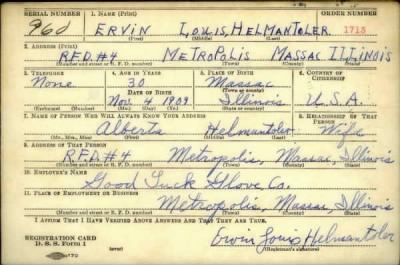 SERIAL NUMBER 1. NAME (Print) ORDER NUMBER
960 ERVIN LOUIS, HELMANTOLER 1713
(First) (Middle) (Last)
2. ADDRESS (Print)
R.F.D. #4 METROPOLIS MASSAC ILLINOIS
(Number and street or R. F. D. number) (Town) (County) (State)
3. TELEPHONE 4. AGE IN YEARS 5. PLACE OF BIRTH 6. COUNTRY OF CITIZENSHIP
None 30 Massac
DATE OF BIRTH (Town or county)
Nov. 4 1909 Illinois U.S.A.
(Exchange) (Number) (Mo.) (Day) (Yr.) (State or country)
7. NAME OF PERSON WHO WILL ALWAYS KNOW YOUR ADDRESS 8. RELATIONSHIP OF THAT PERSON
Alberta Helmantoler Wife
(Mr., Mrs., Miss) (First) (Middle) (Last)
9. ADDRESS OF THAT PERSON
R.F.D. #4 Metropolis, Massac, Illinois
(Number and street or R. F. D. number) (Town) (County) (State)
10. EMPLOYER'S NAME
Good Luck Glove Co.
11. PLACE OF EMPLOYMENT OR BUSINESS
Metropolis, Massac, Illinois
(Number and street or R. F. D. number) (Town) (County) (State)
I AFFIRM THAT I HAVE VERIFIED ABOVE ANSWERS AND THAT THEY ARE TRUE.
REGISTRATION CARD
D. S. S. Form 1
(over)
Ervin Louis Helmantoler
(Registrant's signature)